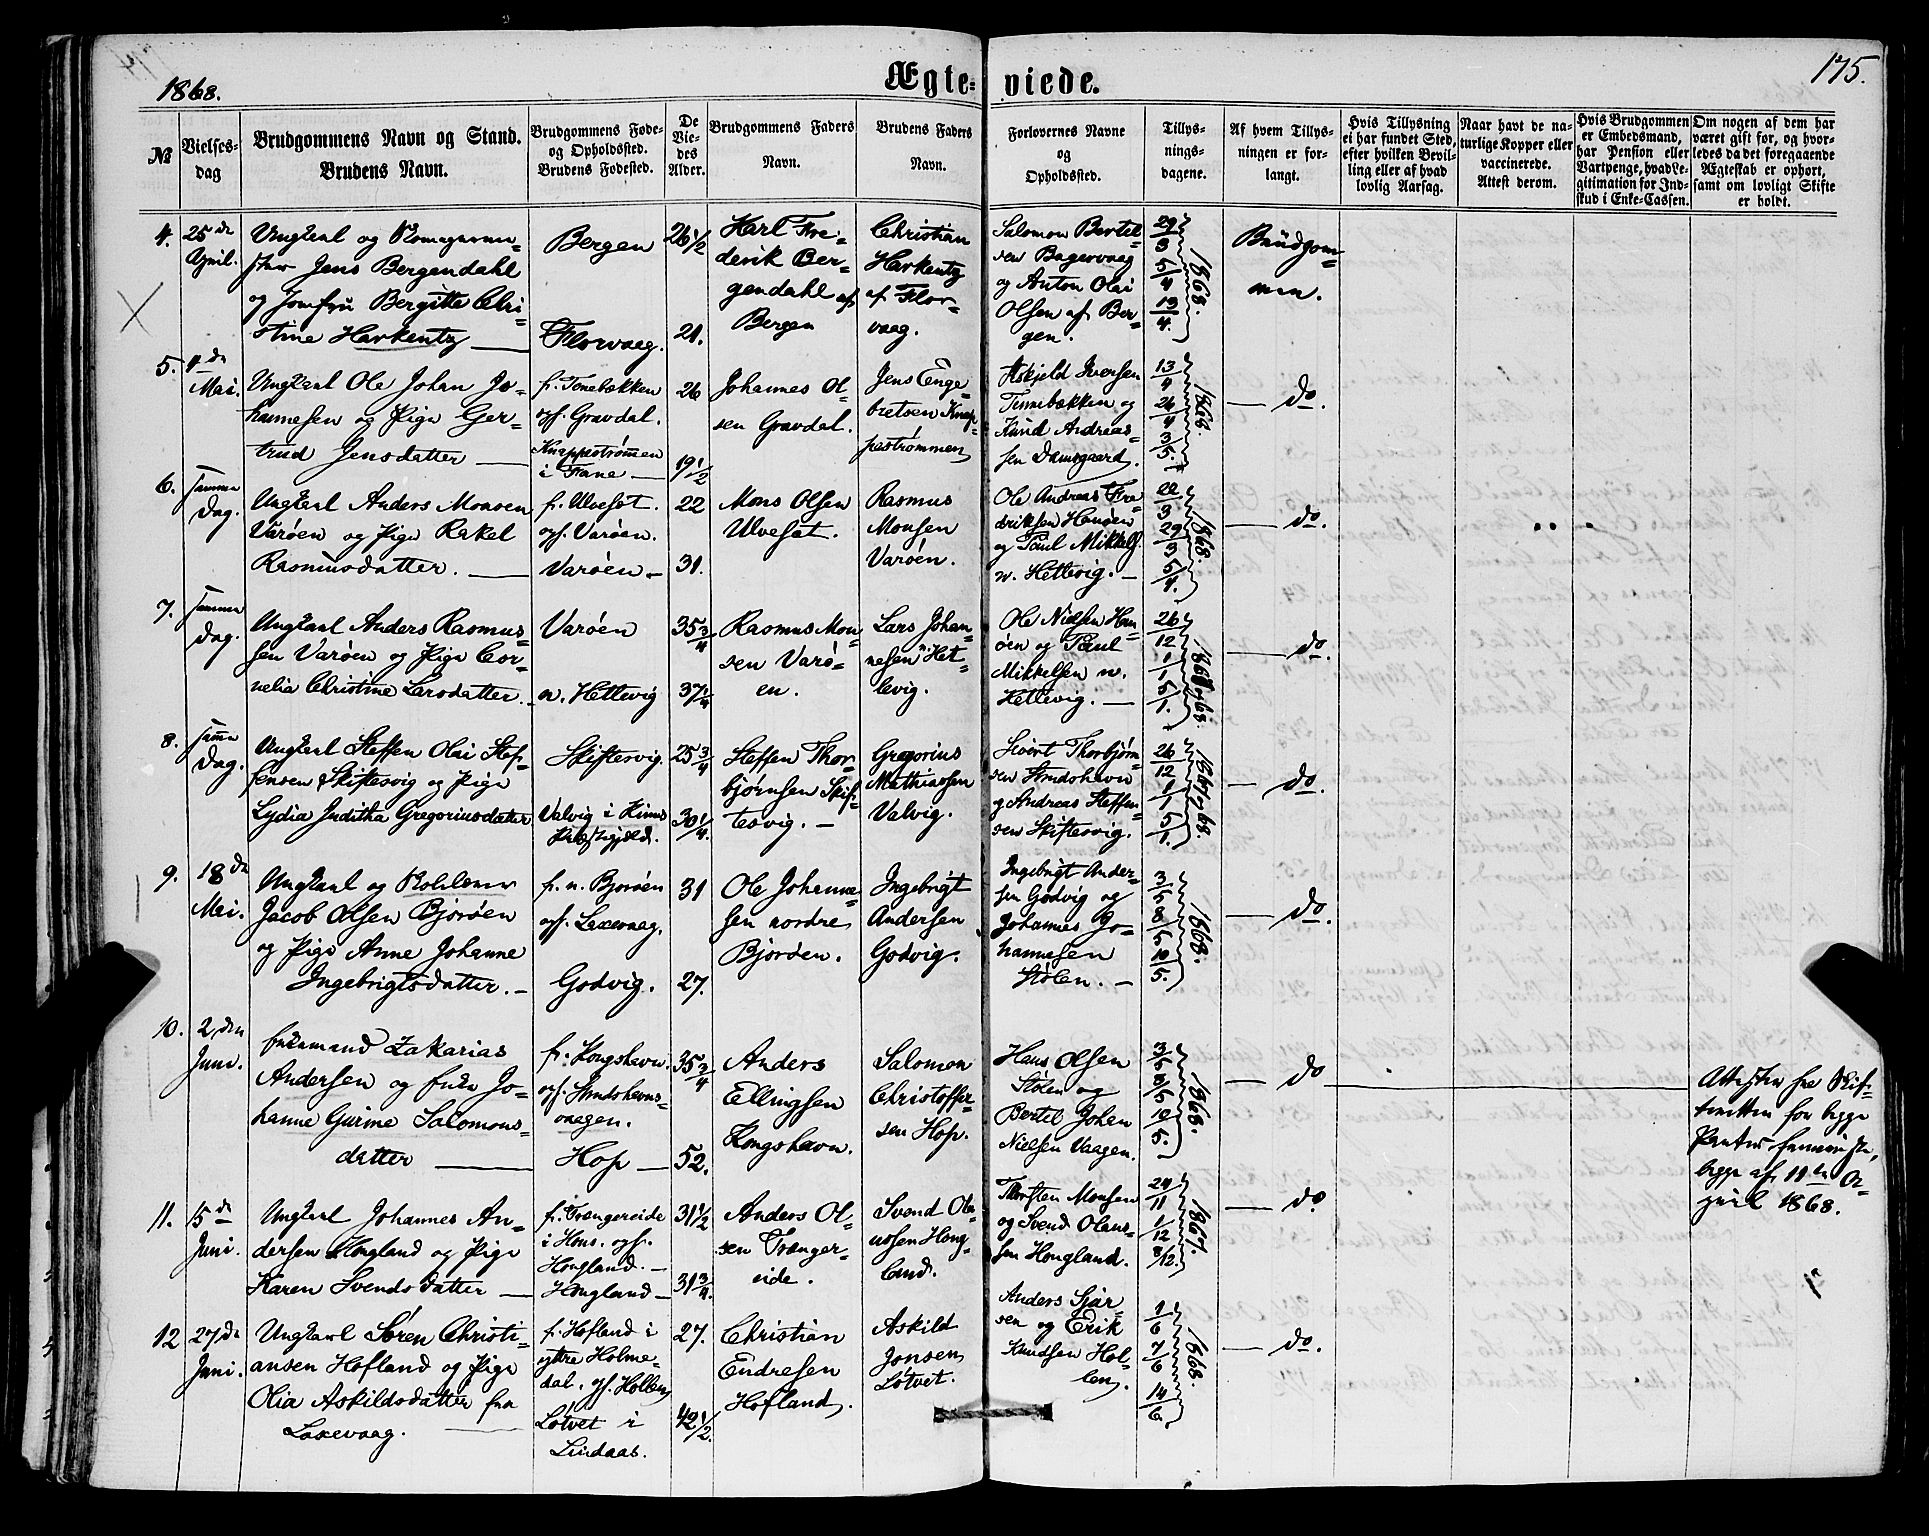 1868.
Ægteviede.
175.
№
Vielsesdag
Brudgommens Navn og Stand.
Brudens Navn.
Brudgommens Føde- og Opholdssted.
Brudens Fødested.
De Viedes Alder.
Brudgommens Faders Navn.
Brudens Faders Navn.
Forlovernes Navne og Opholdssted.
Tillysningsdagene.
Af hvem Tillysningen er forlangt.
Hvis Tillysning ei har fundet Sted, efter hvilken Bevilling eller af hvad lovlig Aarsag.
Naar havt de naturlige Kopper eller vaccinerede. Attest derom.
Hvis Brudgommen er Embedsmand, har Pension eller Vartpenge, hvad Legitimation for Indskud i Enke-Cassen.
Om nogen af dem har været gift før, og hvorledes da det foregaaende Ægteskab er ophørt, samt om lovligt Skifte er holdt.
4.
25de April.
Ungkarl og
ster Jens Bergendahl
og Jomfru Bergitte Chri-
stine Harkentz
Bergen
Florvaag.
26 1/2
21.
Karl Fre-
derik Ber-
gendahl af
Bergen
Christian
Harkentz
af Flor-
vaag.
Salomon Bertel-
sen Bagervaag
og Anton Olai
Olsen af Ber-
gen.
29/3 5/4 13/4. 1868.
Brudgom-
men.
5.
4de Mai.
Ungkarl Ole Johan Jo-
hannesen og Pige Ger-
trud Jensdatter
f. Tonebækken
opf. Gravdal.
Knappestrømmen
i Fane
26
19 1/2
Johannes Ol-
sen Gravdal.
Jens Enge-
bretsen Knap-
pestrømmen
Askjeld Iversen
Tennebækken og
Knud Andreas-
sen Damsgaard.
13/4 26/4 3/5. 1868.
do.
6.
samme Dag.
Ungkarl Anders Monsen
Varøen og Pige Rakel
Rasmusdatter.
f. Ulveset.
opf. Varøen.
Varøen
22
31.
Mons Olsen
Ulveset.
Rasmus
Monsen
Varøen.
Ole Andreas Fre-
driksen Hanøen
og Paul Mikkels.
n. Hettevig.
22/3 29/3 5/4. 1868.
do.
7.
samme Dag.
Ungkarl Anders Rasmus-
sen Varøen og Pige Cor-
nelia Christine Larsdatter.
Varøen
n. Hettevig
35 3/4
37 1/4
Rasmus Mon-
sen Varø-
en.
Lars Johan-
nesen Het-
levig.
Ole Nielsen Han-
øen og Paul
Mikkelsen n.
Hettevig.
26/12 1/1 5/1. 1867 og 68.
do.
8.
samme Dag.
Ungkarl Steffen Olai Stef-
fensen Skiftesvig og Pige
Lydia Juditha Gregoriusdatter
Skiftesvig.
Valvig i Kinns
Præstegjeld.
25 3/4
30 1/4.
Steffen Thor-
bjørnsen Skif-
tesvig.
Gregorius
Mathiassen
Valvig.
Sivert Thorbjørn-
sen Strudshavn
og Andreas Steffen-
sen Skiftesvig.
26/12 1/1 5/1. 1867 og 68.
do.
9.
18de Mai.
Ungkarl og
Jacob Olsen Bjorøen
og Pige Anne Johanne
Ingebrigtsdatter.
f. n. Bjorøen
opf. Laxevaag.
Godvig.
31
27.
Ole Johanne-
sen nordre
Bjorøen.
Ingebrigt
Andersen
Godvig.
Ingebrigt Ander-
sen Godvig og
Johannes Jo-
hannesen
Stølen.
3/5 8/5 10/5. 1868.
do.
10.
2den Juni.
Enkemand Zakarias
Andersen og Enke Jo-
hanne Gurine Salomons-
datter
f. Kongshavn.
opf. Strudshavns-
vaagen.
Hop
35 3/4
52.
Anders
Ellingsen
Kongshavn.
Salomon
Christoffer-
sen Hop.
Hans Olsen
Stølen og
Bertel Johan
Nielsen Vaagen.
3/5 8/5 10/5. 1868.
do
Attester fra Skif-
teretten for begge
begge af 11te A-
pril 1868.
11.
5de Juni.
Ungkarl Johannes An-
dersen Hougland og Pige
Karen Svendsdatter
f. Trængereide
i Hous. opf.
Hougland.
Hougland
31 1/2
31 3/4.
Anders Ol-
sen Trænger-
eide.
Svend Ola-
ussen Houg-
land.
Thorsten Monsen
og Svend Olaus-
sen Hougland.
24/11 1/12 8/12. 1867.
do
12
27de Juni.
Ungkarl Søren Christi-
ansen Hofland og Pige
Olia Askildsdatter fra
Laxevaag.
f. Hofland i
ytre Holme-
dal. opf. Hollen
Løtvet i
Lindaas.
27.
42 1/2.
Christian
Endresen
Hofland.
Askild
Jonsen
Løtvet.
Anders Sjur-
sen og Erik
Knudsen Hol-
len.
1/6 7/6 14/6. 1868.
do.